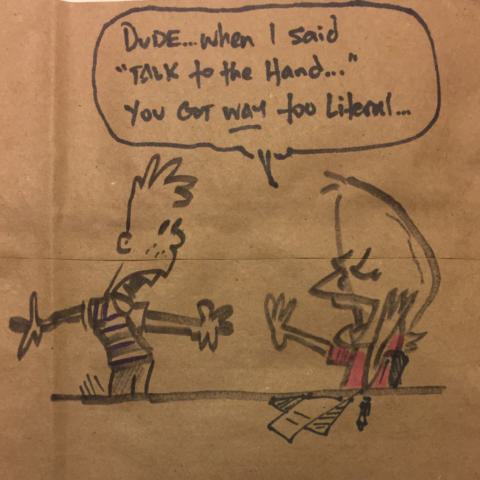 DUDE...when I said
"TALK to the Hand..."
You GOT WAY too Literal...